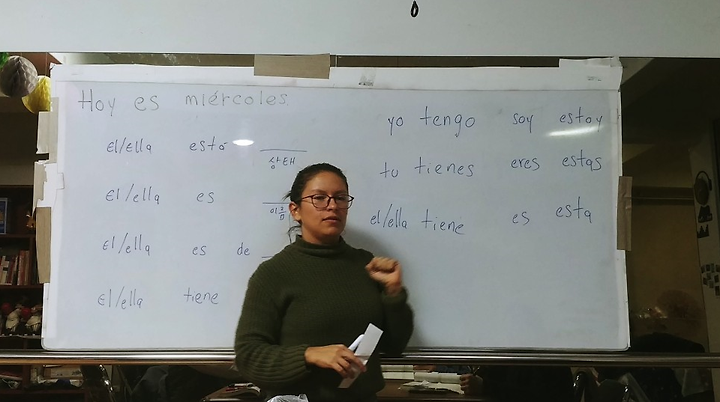 Hoy es miércoles.
el/ella está 상태
el/ella es 이름
el/ella es de
el/ella tiene
yo tengo soy estoy
tu tienes eres estas
el/ella tiene es esta